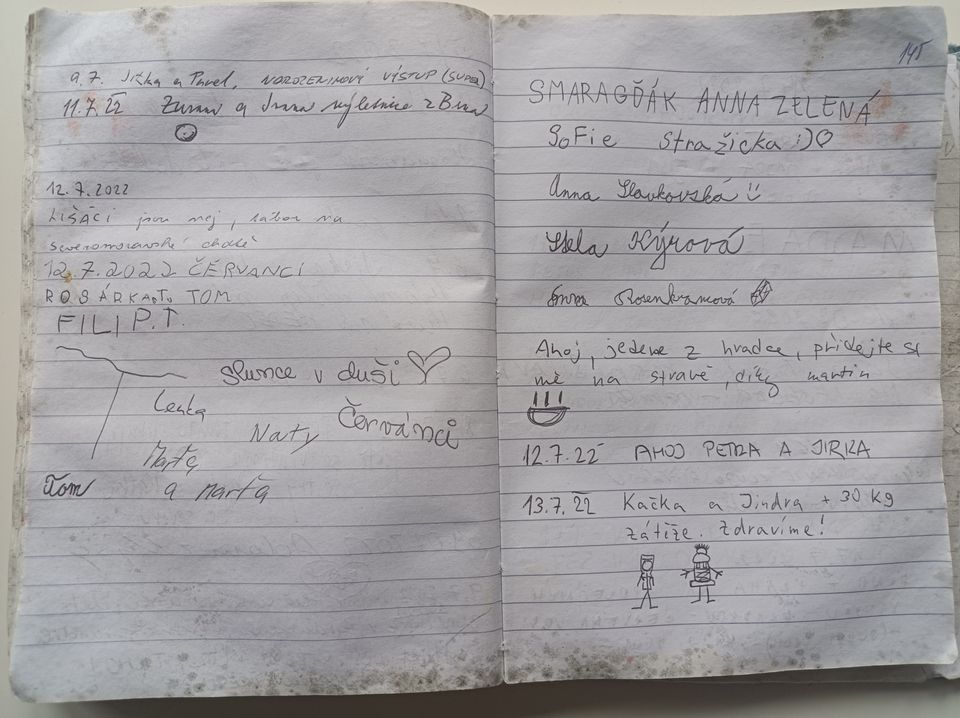 9.7. Jirka a Pavel, NAROZENINOVÝ VÝSTUP (SUPER)
11.7.22 Zuzana a Ivana výletnice z Brna
12.7.2022
LIŠÁCI jsou nej, tábor na
severomoravské chatě
12.7.2022 ČERVANCI
ROSÁRKA TOM
FILIP.T.
slunce v duši
Lenka
Naty
Červánci
Marťa
Tom
a Marťa
145
SMARAGĎÁK ANNA ZELENÁ
SoFie Stražicka :)
Anna Slavkovská
Stela Kýrová
Emma Rosenkrancová
Ahoj, jedeme z hradce, přidejte se
mě na stravě, díky martin
12.7.22 AHOJ PETRA A JIRKA
13.7.22 Kačka a Jindra + 30 kg
zátěže. Zdravíme!